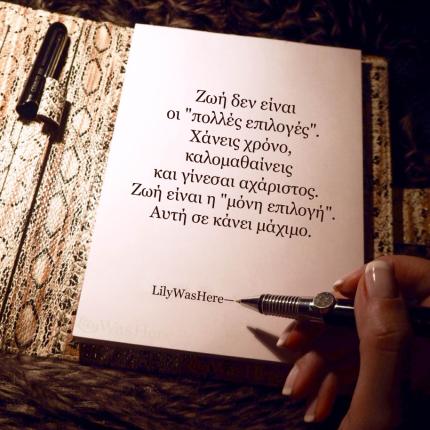 Ζωή δεν είναι
οι "πολλές επιλογές".
Χάνεις χρόνο,
καλομαθαίνεις
και γίνεσαι αχάριστος.
Ζωή είναι η "μόνη επιλογή".
Αυτή σε κάνει μάχιμο.
LilyWasHere—
LilyWasHere